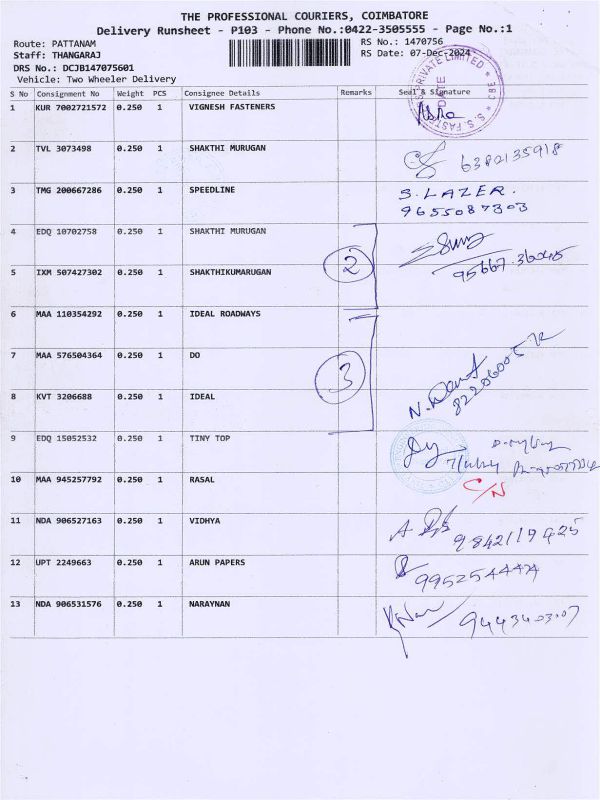 THE PROFESSIONAL COURIERS, COIMBATORE
Delivery Runsheet - P103 - Phone No.:0422-3505555 - Page No.:1
Route: PATTANAM RS No.: 1470756
Staff: THANGARAJ RS Date: 07-Dec-2024
DRS No.: DCJB147075601
Vehicle: Two Wheeler Delivery
S No Consignment No Weight PCS Consignee Details Remarks Seal & Signature
1 KUR 7002721572 0.250 1 VIGNESH FASTENERS
PRIVATE LIMITED * CBE * S.S. FASTE
DATE
2 TVL 3073498 0.250 1 SHAKTHI MURUGAN 6382135918
3 TMG 200667286 0.250 1 SPEEDLINE S. LAZER.
9655087303
4 EDQ 10702758 0.250 1 SHAKTHI MURUGAN
2
5 IXM 507427302 0.250 1 SHAKTHIKUMARUGAN
6 MAA 110354292 0.250 1 IDEAL ROADWAYS
7 MAA 576504364 0.250 1 DO
3
8 KVT 3206688 0.250 1 IDEAL
9 EDQ 15052532 0.250 1 TINY TOP
10 MAA 945257792 0.250 1 RASAL C/N
11 NDA 906527163 0.250 1 VIDHYA 9842119425
12 UPT 2249663 0.250 1 ARUN PAPERS 9952544474
13 NDA 906531576 0.250 1 NARAYNAN